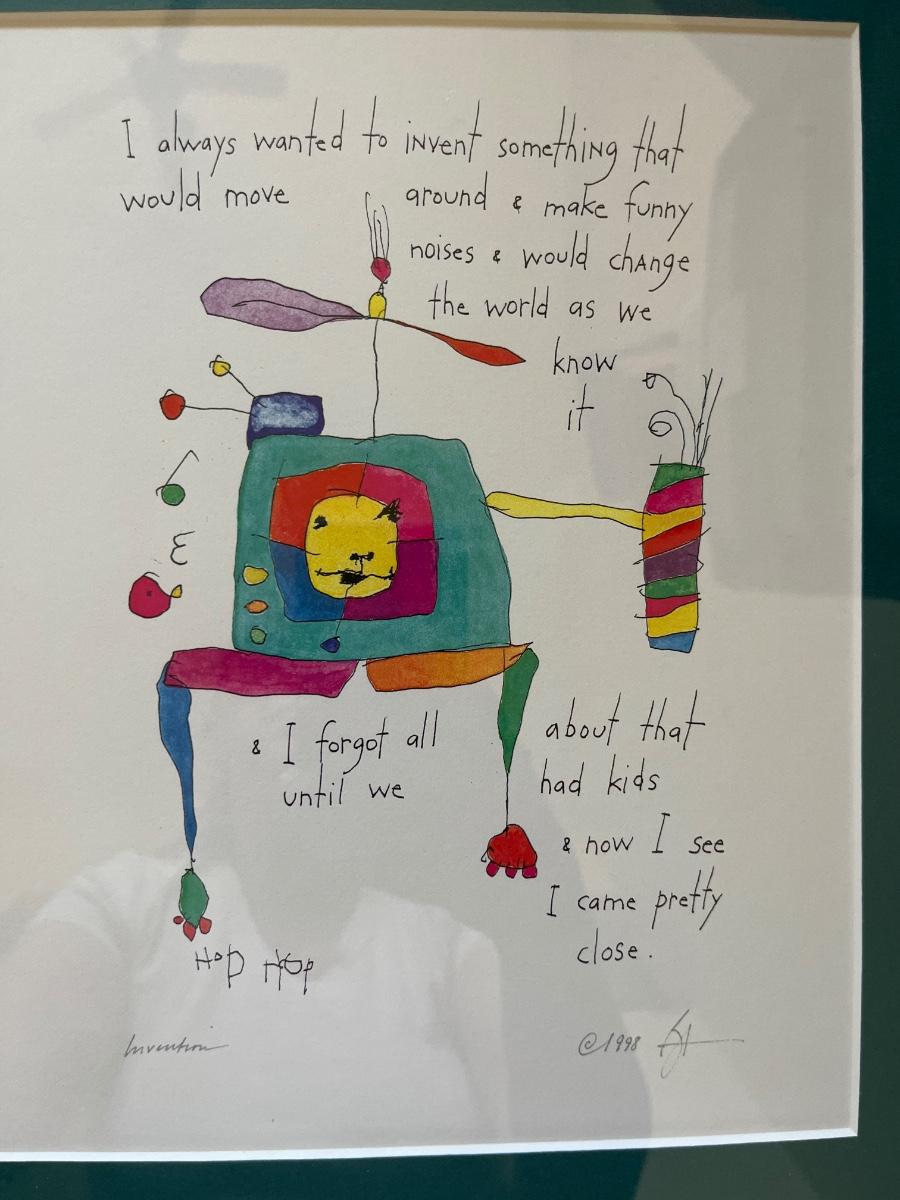 I always wanted to invent something that
would move around & make funny
noises & would change
the world as we
know
it
& I forgot all about that
until we had kids
& now I see
I came pretty
close.
HOP HOP
Invention
©1998